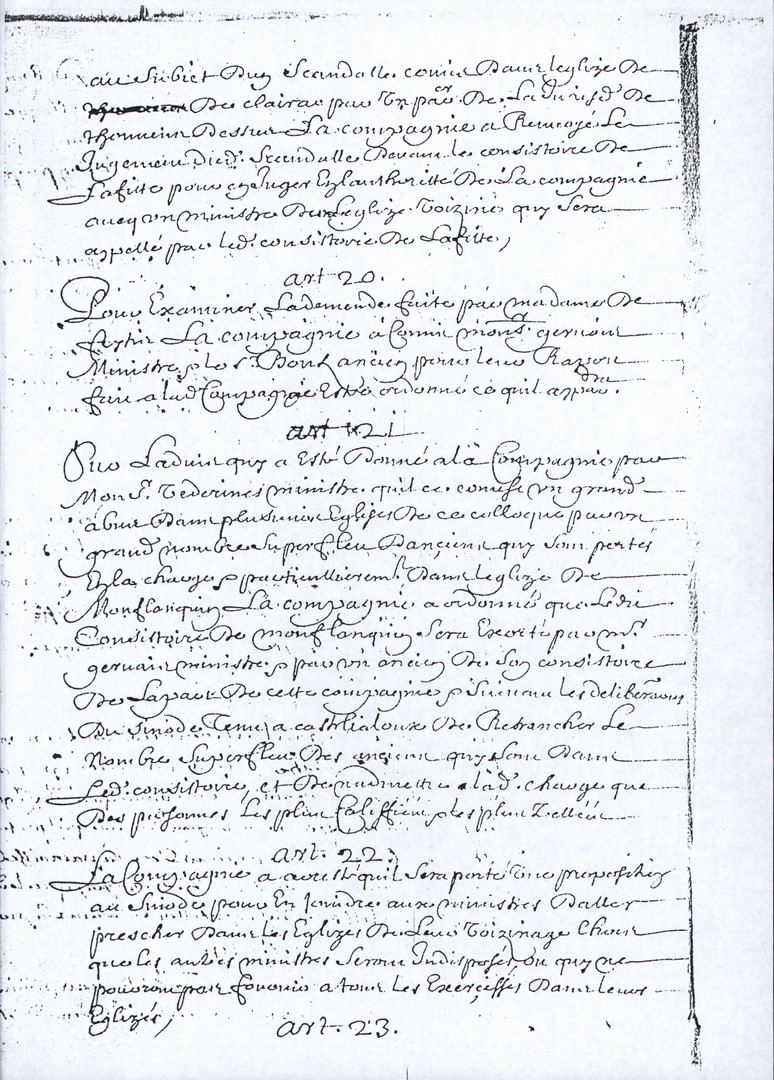 au Subiet Dun Scandalle comis Dans leglize De
De clairac par Un De La De
thonneins Dessus La compagnie a Renvoyé Le
Jugement dud. Scandalle Devant le consistoire De
Lafite pour en Juger En lauthoritté De La compagnie
avecq un ministre De Leglize Voizine quy Sera
appellé par led. consistoire De Lafitte,
art 20.
Pour Examiner La demende faite par madame De
La compagnie a Comis Monsr. gervain
Ministre & le Sr. ancien pour leur Rapport
fait a lad. Compagnie Estre ordonné ce quil appdra.
art 21
Sur Ladvis quy a Esté Donné a la Compagnie par
Monsr. ministre quil ce comise un grand
abus Dans plusieurs Eglizes De ce colloque par un
grand nombre Superfleu Danciens quy sont portés
En la charge & particullierement Dans leglize De
Monflanquin La compagnie a ordonné que Ledit
Consistoire De monflanquin Sera Exorté par mr.
gervain ministre & par un ancien De Son consistoire
De La part De cette compagnie & Suivant les deliberaons
Du Sinode Tenu a castelialoux De Retrancher Le
Nombre Superfleu Des anciens quy Sont Dans
Led. consistoire et De nadmettre a lad. charge que
Des personnes Les plus Califfiés & les plus Zellés
art. 22.
La Compagnie a aresté quil Sera porté Une propositin
au Sinode pour En Joindre aux ministres Daller
prescher Dans les Eglizes De Leur Voizinage Lhors
que les autres ministres Seront Indisposés Ou quy ne
pouront pas fournir a tous les Exercisses Dans leurs
Eglizes,
art. 23.